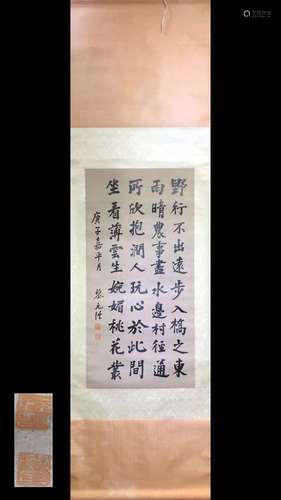 野行不出遠步入橋之東
雨晴農事盡水邊村徑通
所欣抱澗人玩心於此間
坐看薄雲生婉媚桃花叢
庚子嘉平月 黎元洪